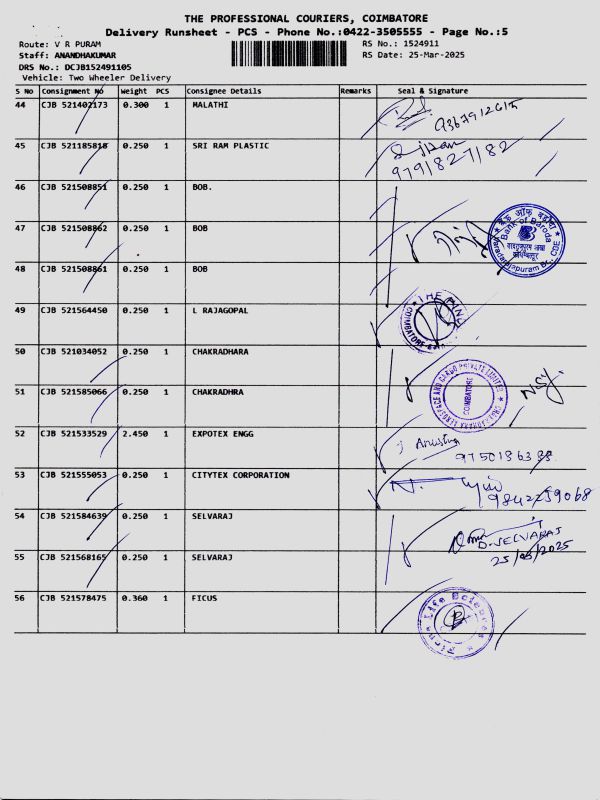 THE PROFESSIONAL COURIERS, COIMBATORE
Delivery Runsheet - PCS - Phone No.:0422-3505555 - Page No.:5
Route: V R PURAM
RS No.: 1524911
Staff: ANANDHAKUMAR
RS Date: 25-Mar-2025
DRS No.: DCJB152491105
Vehicle: Two Wheeler Delivery
S No Consignment No Weight PCS Consignee Details Remarks Seal & Signature
44 CJB 521402173 0.300 1 MALATHI
45 CJB 521185818 0.250 1 SRI RAM PLASTIC
9791827182
46 CJB 521508851 0.250 1 BOB.
47 CJB 521508862 0.250 1 BOB
बैंक ऑफ बड़ौदा
Bank of Baroda
48 CJB 521508861 0.250 1 BOB
49 CJB 521564450 0.250 1 L RAJAGOPAL
THE HINDU
COIMBATORE
50 CJB 521034052 0.250 1 CHAKRADHARA
51 CJB 521585066 0.250 1 CHAKRADHRA
CHAKRADHARA AEROSPACE AND CARGO PRIVATE LIMITED
COIMBATORE
52 CJB 521533529 2.450 1 EXPOTEX ENGG
53 CJB 521555053 0.250 1 CITYTEX CORPORATION
9842259068
54 CJB 521584639 0.250 1 SELVARAJ
D. SELVARAJ
25/03/2025
55 CJB 521568165 0.250 1 SELVARAJ
56 CJB 521578475 0.360 1 FICUS
Life Sciences